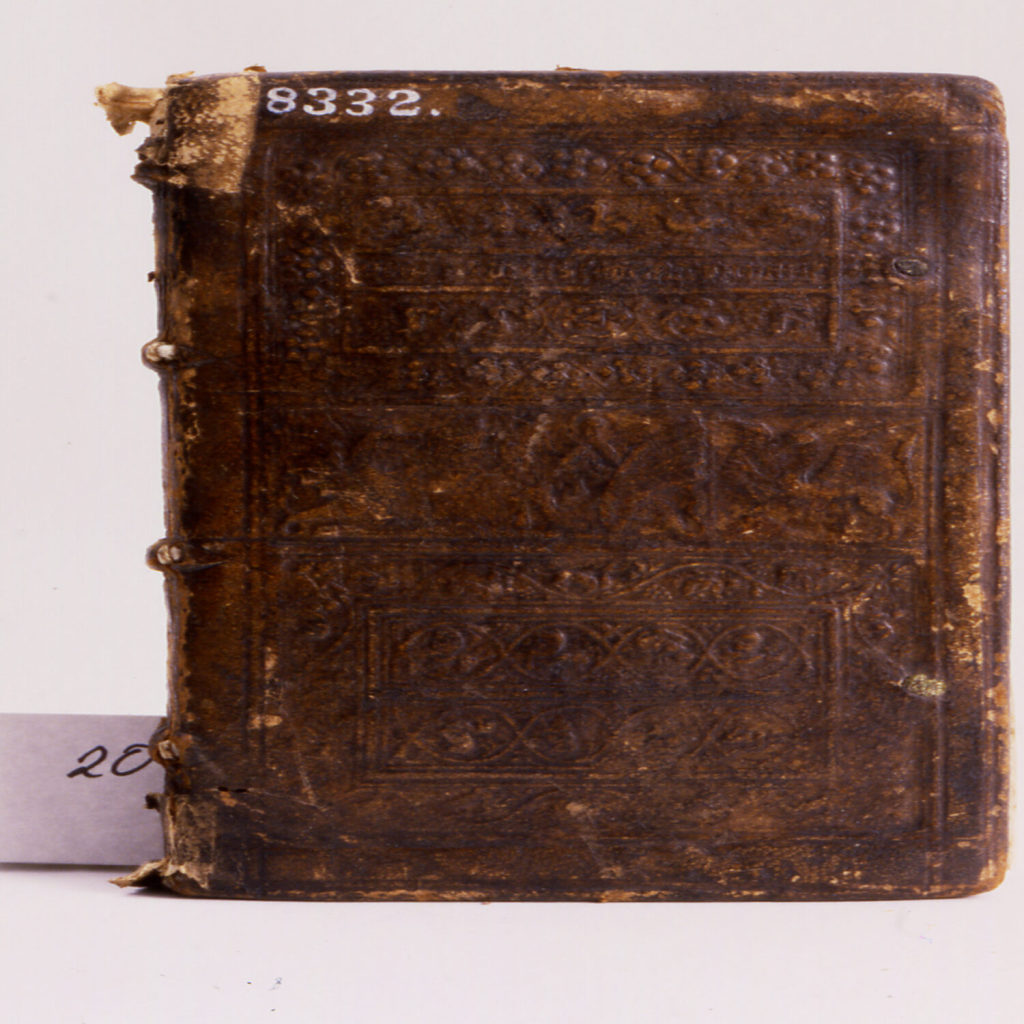 8332.
20